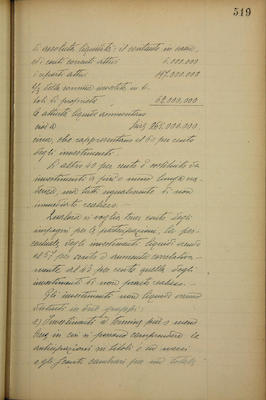 519
di assoluta liquidità: il contante in cassa,
ed i conti correnti attivi 6.000.000
i riporti attivi 197.000.000
titoli di proprietà 62.000.000
le attività liquide ammontano
così a 265.000.000
circa, che rappresentano il 60 per cento
degli investimenti.
L'altro 40 per cento è costituito da
investimenti a più o meno lunga sca-
denza, ma tutti egualmente di non
immediato realizzo.
Qualora si voglia tener conto degli
impegni per le partecipazioni, la per-
centuale degli investimenti liquidi scende
al 57 per cento e aumenta correlativa-
mente al 43 per cento quella degli
investimenti di non pronto realizzo.
Gli investimenti non liquidi vanno
distinti in due gruppi:
a) Investimenti a termine più o meno
lungo in cui si possono comprendere le
anticipazioni su titoli, su merci
e gli sconti cambiari per un totale